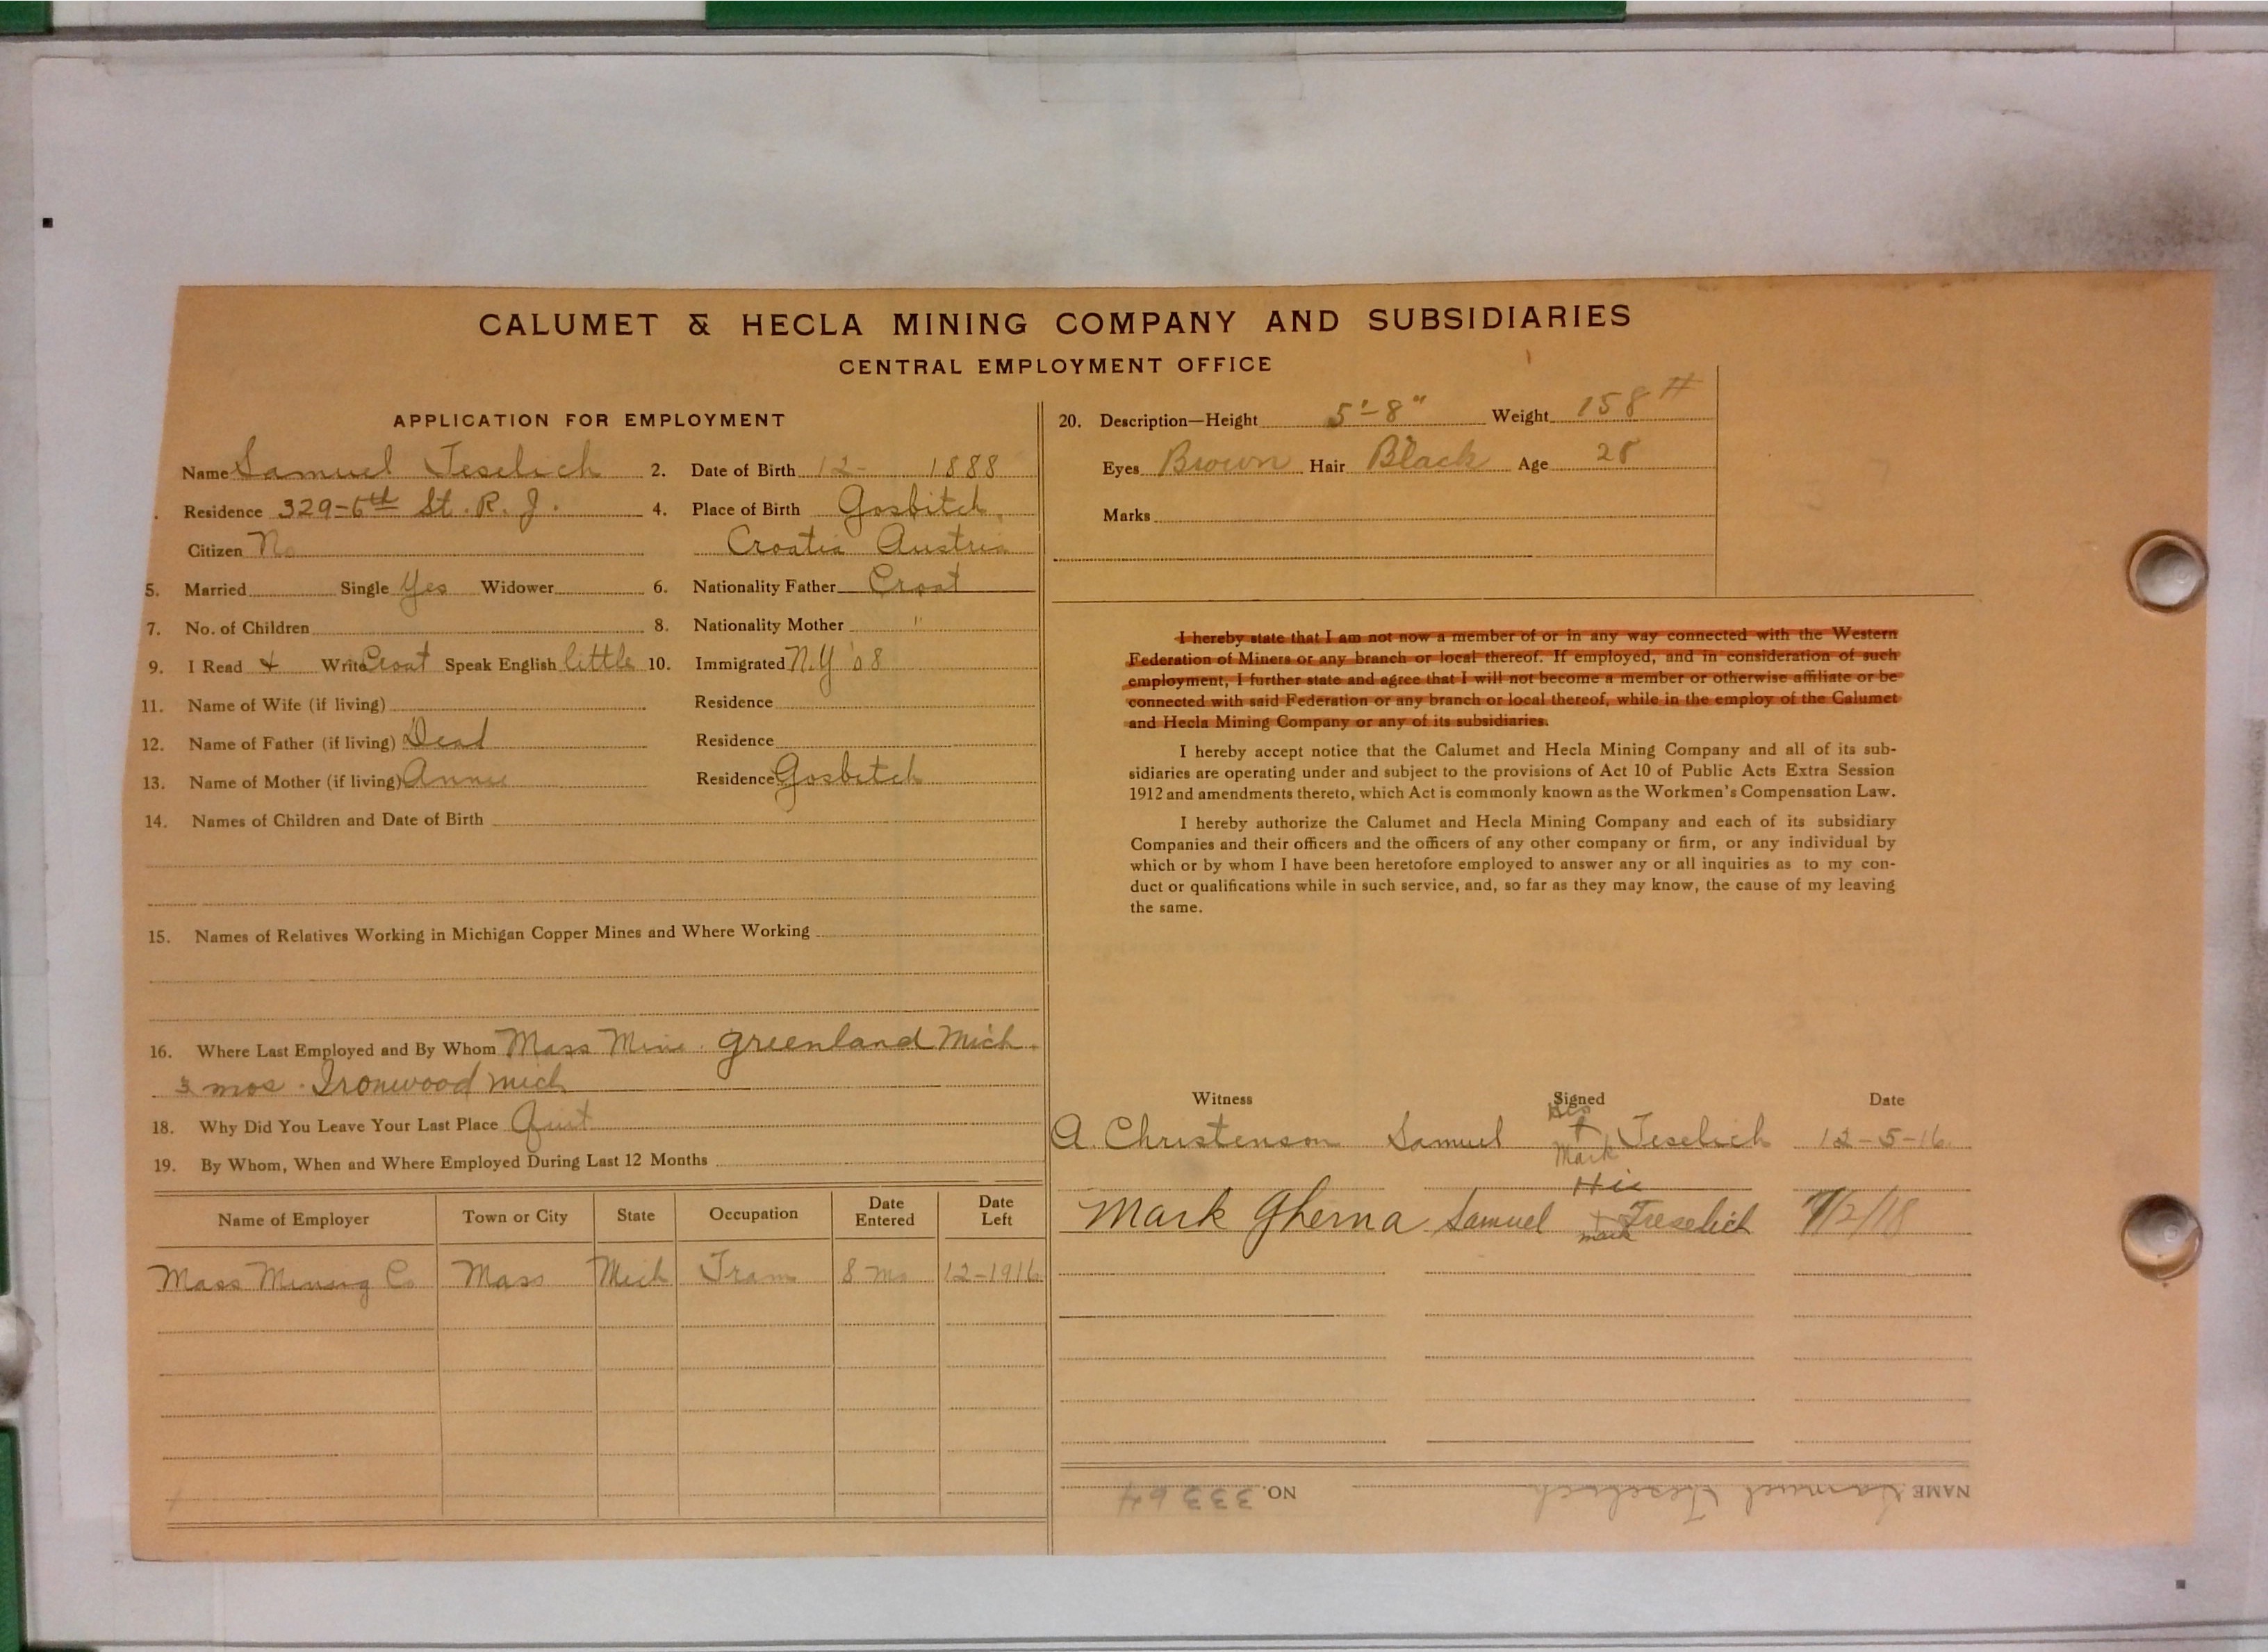 CALUMET & HECLA MINING COMPANY AND SUBSIDIARIES
CENTRAL EMPLOYMENT OFFICE
APPLICATION FOR EMPLOYMENT
Name Samuel Jeselich 2. Date of Birth 12- 1888
Residence 329-6th St. R. J. 4. Place of Birth Gosbitch,
Citizen No Croatia Austria
5. Married Single Yes Widower 6. Nationality Father Croat
7. No. of Children 8. Nationality Mother "
9. I Read & Write Croat Speak English little 10. Immigrated N.Y '08
11. Name of Wife (if living) Residence
12. Name of Father (if living) Dead Residence
13. Name of Mother (if living) Annie Residence Gosbitch
14. Names of Children and Date of Birth
15. Names of Relatives Working in Michigan Copper Mines and Where Working
16. Where Last Employed and By Whom Mass Mine. Greenland Mich.
3 mos. Ironwood Mich
18. Why Did You Leave Your Last Place Quit
19. By Whom, When and Where Employed During Last 12 Months
Name of Employer Town or City State Occupation Date Entered Date Left
Mass Mining Co Mass Mich Tram 8 mo 12-1916
20. Description—Height 5'-8" Weight 158 #
Eyes Brown Hair Black Age 28
Marks
I hereby state that I am not now a member of or in any way connected with the Western
Federation of Miners or any branch or local thereof. If employed, and in consideration of such
employment, I further state and agree that I will not become a member or otherwise affiliate or be
connected with said Federation or any branch or local thereof, while in the employ of the Calumet
and Hecla Mining Company or any of its subsidiaries.
I hereby accept notice that the Calumet and Hecla Mining Company and all of its sub-
sidiaries are operating under and subject to the provisions of Act 10 of Public Acts Extra Session
1912 and amendments thereto, which Act is commonly known as the Workmen's Compensation Law.
I hereby authorize the Calumet and Hecla Mining Company and each of its subsidiary
Companies and their officers and the officers of any other company or firm, or any individual by
which or by whom I have been heretofore employed to answer any or all inquiries as to my con-
duct or qualifications while in such service, and, so far as they may know, the cause of my leaving
the same.
Witness Signed Date
His
A. Christenson Samuel + Jeselich 12-5-16
Mark
His
Mark Gherna Samuel + Jeselich
mark
NAME Samuel Jeselich NO. 33364